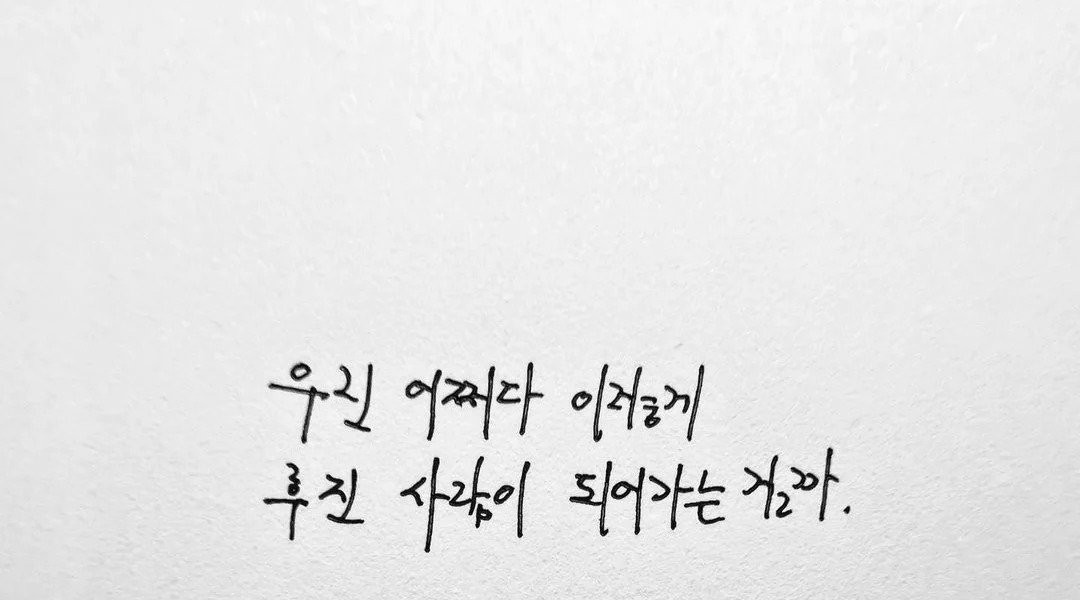 우린 어쩌다 이렇게
후진 사람이 되어가는 걸까.